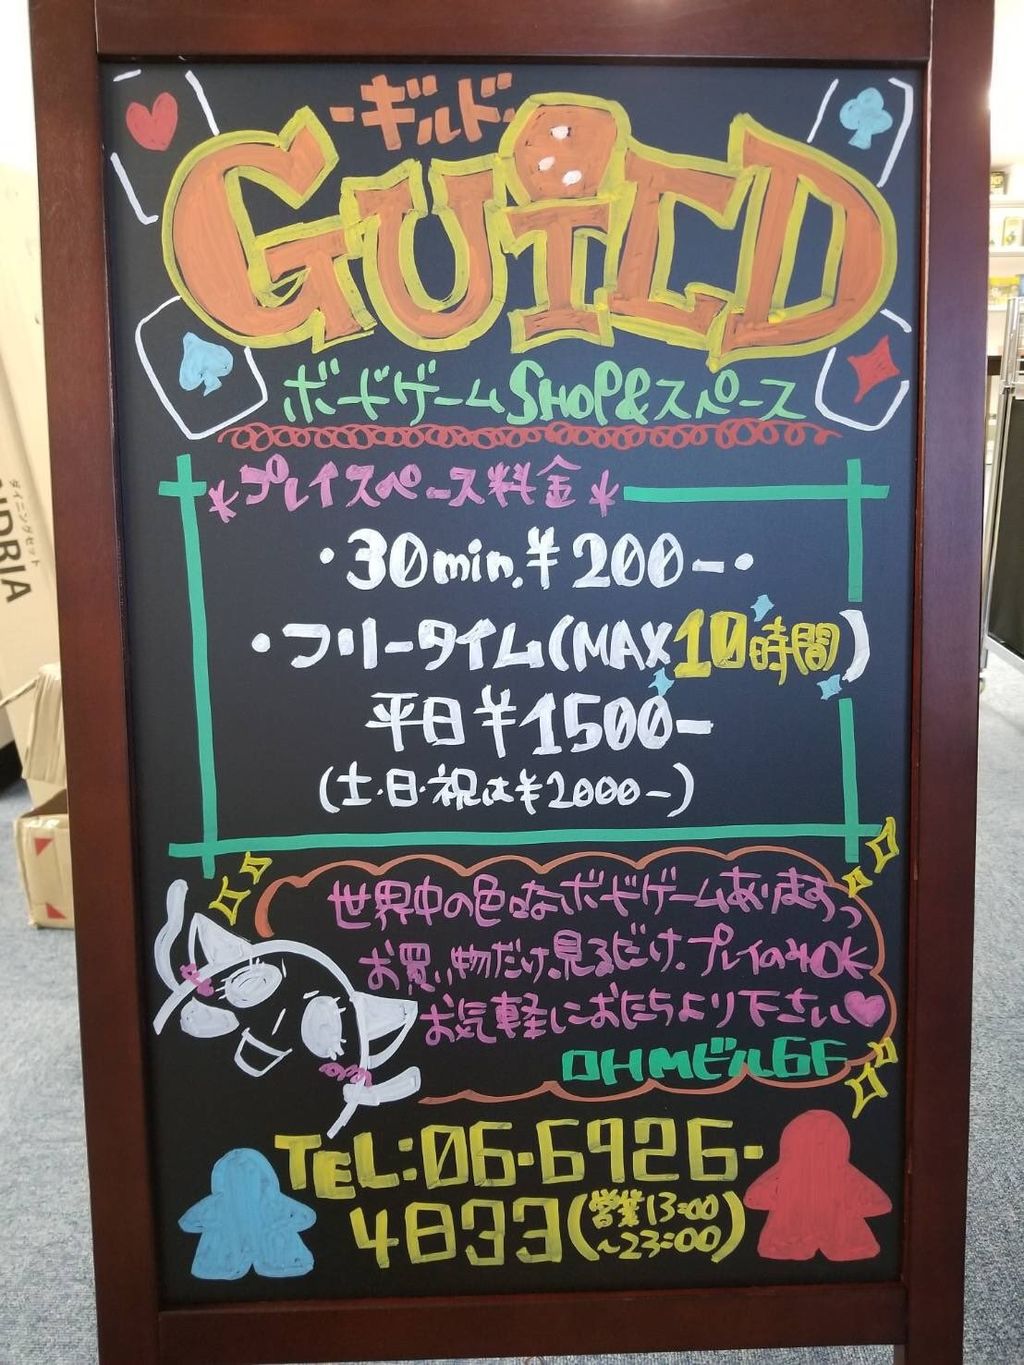 -ギルド-
GUiLD
ボードゲームSHOP&スペース
*プレイスペース料金*
・30min.¥200-・
・フリータイム(MAX10時間)
平日¥1500-
(土・日・祝は¥2000-)
世界中の色々なボードゲームありますっ
お買い物だけ、見るだけ、プレイのみOK
お気軽にお立ちより下さい♥
OHMビル6F
TEL:06-6926-
4833(営業13:00
~23:00)
ダイニングセット
NDRIA